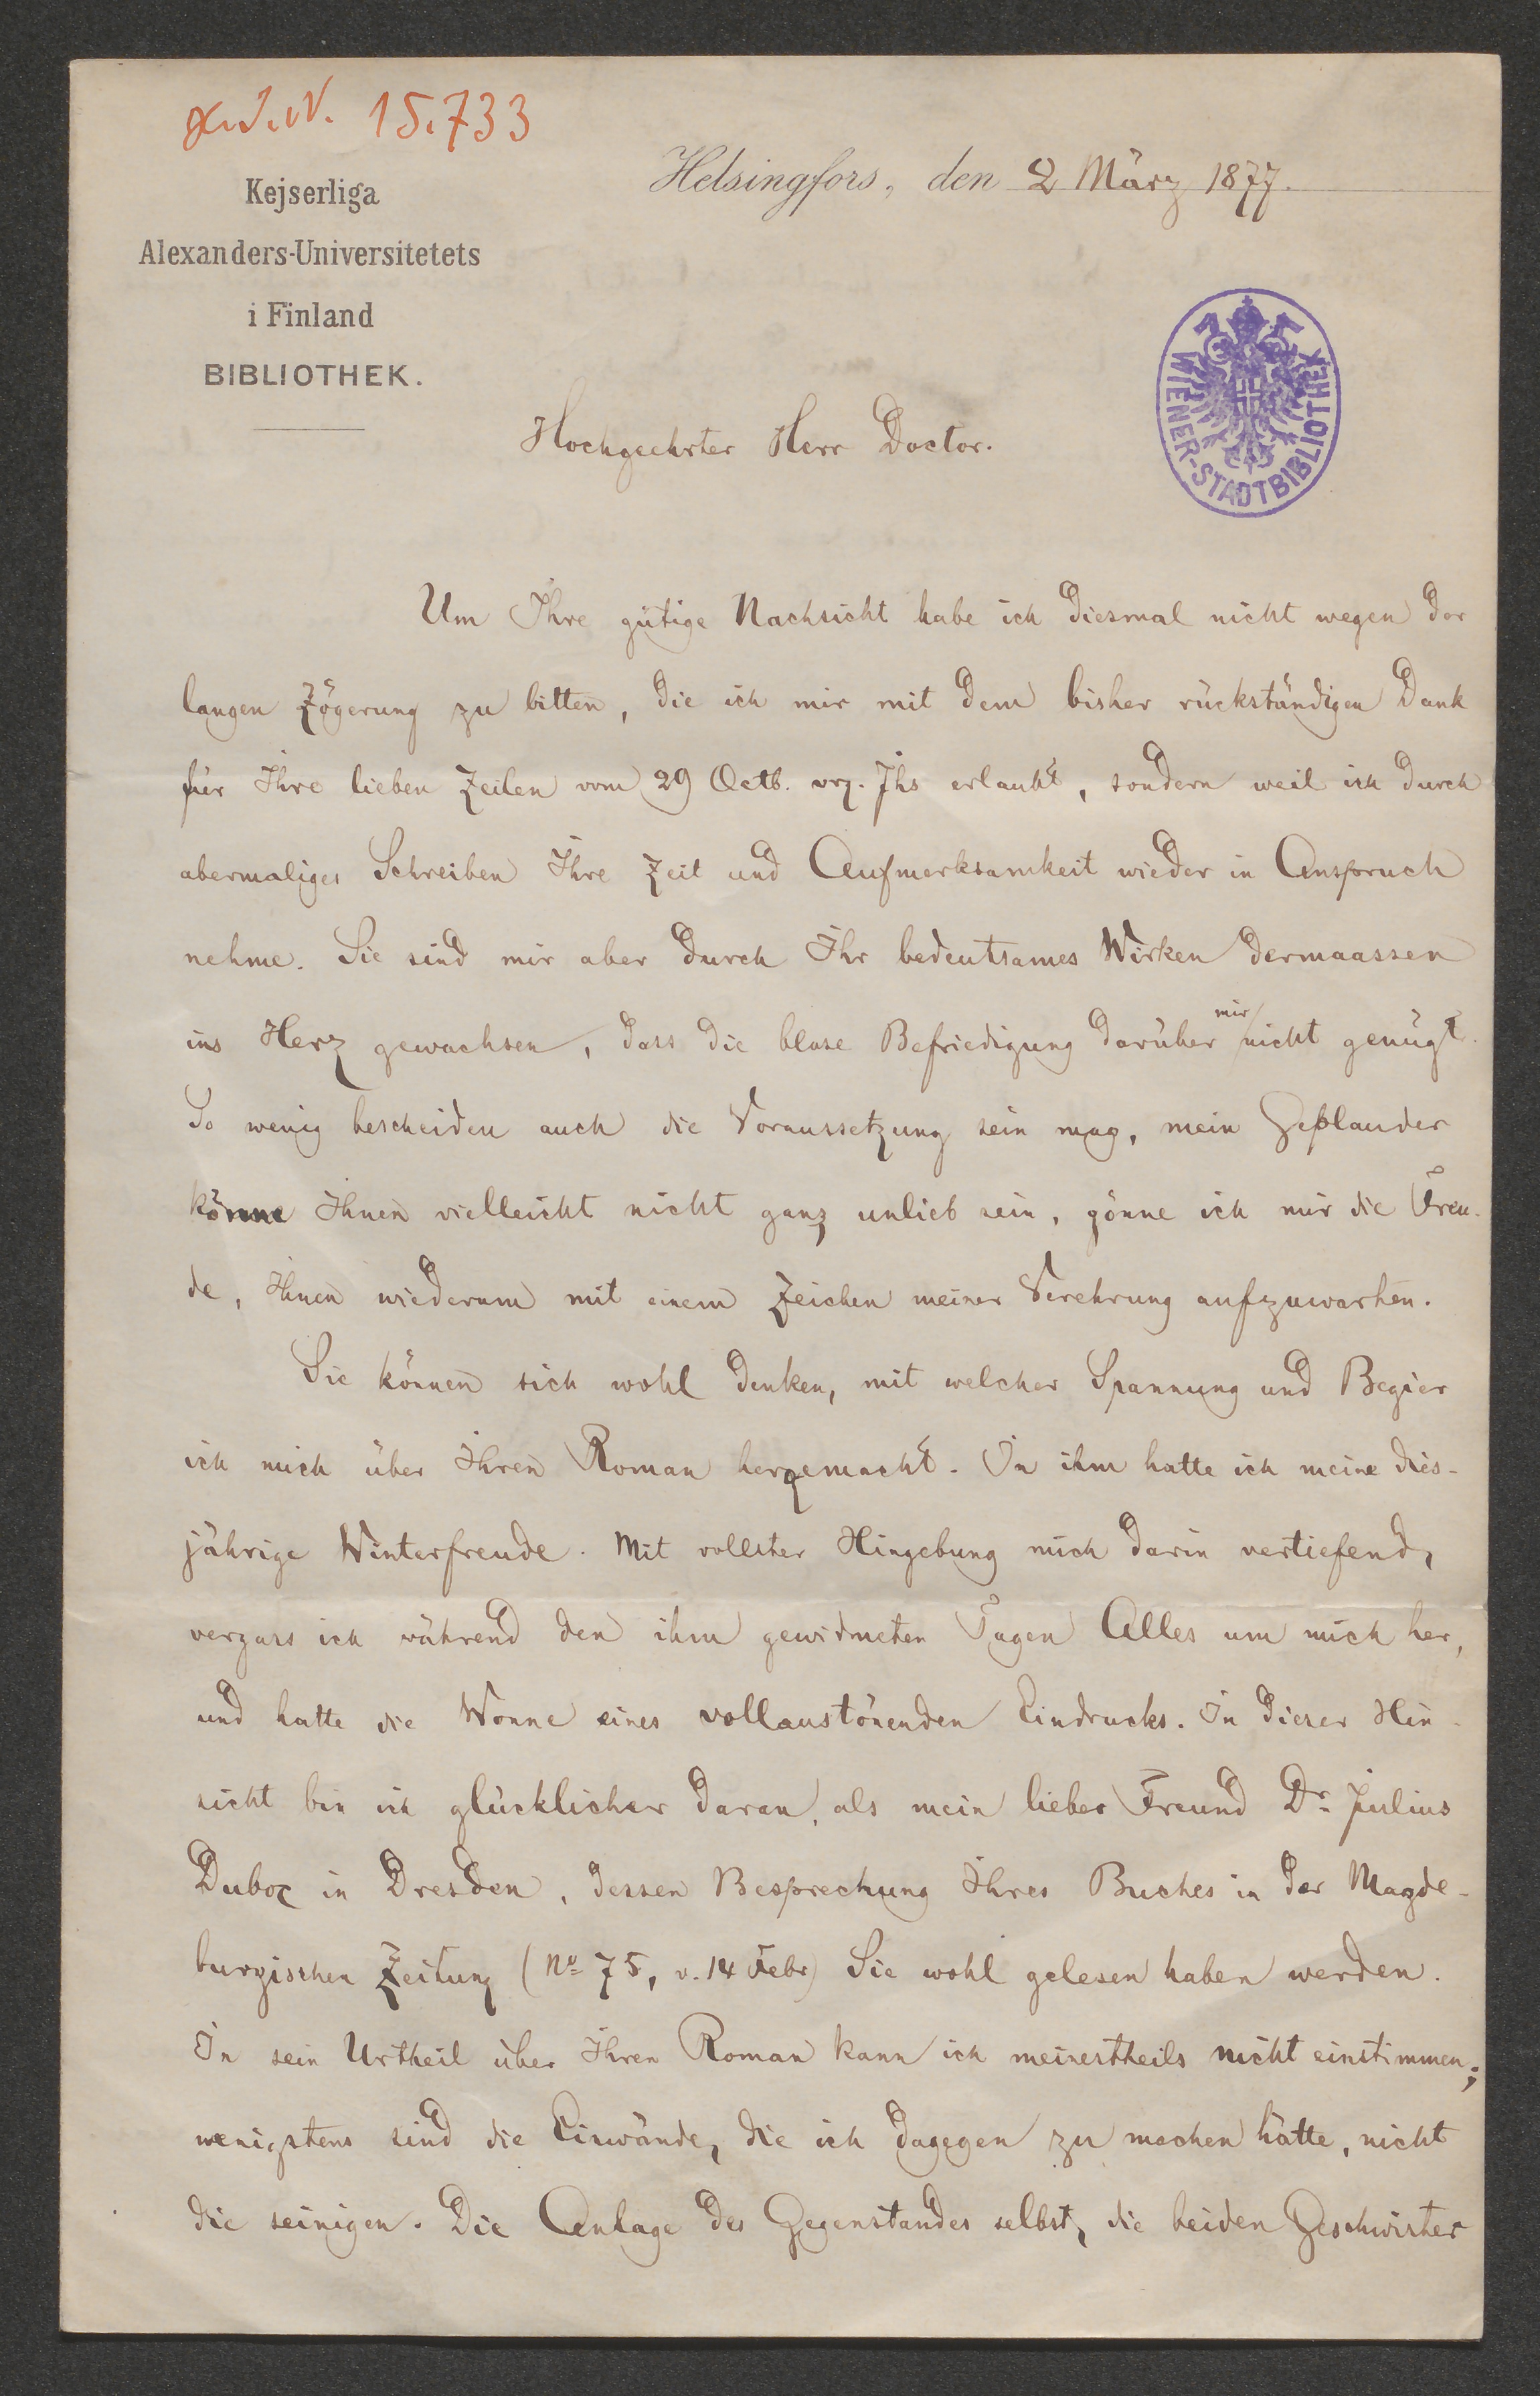 H.I.N. 15.733
Kejserliga
Alexanders-Universitetets
i Finland
BIBLIOTHEK.
Helsingfors, den 2 März 1877.
WIENER-STADTBIBLIOTHEK
Hochgeehrter Herr Doctor.
Um Ihre gütige Nachsicht habe ich diesmal nicht wegen der
langen Zögerung zu bitten, die ich mir mit dem bisher rückständigen Dank
für Ihre lieben Zeilen vom 29 Octb. vrg. Jhs erlaubt, sondern weil ich durch
abermaliges Schreiben Ihre Zeit und Aufmerksamkeit wieder in Anspruch
nehme. Sie sind mir aber durch Ihr bedeutsames Wirken dermaassen
ins Herz gewachsen, dass die blose Befriedigung darüber mir nicht genügt.
So wenig bescheiden auch die Voraussetzung sein mag, mein Geplauder
könne Ihnen vielleicht nicht ganz unlieb sein, gönne ich mir die Freu-
de, Ihnen wiederum mit einem Zeichen meiner Verehrung aufzuwarten.
Sie können sich wohl denken, mit welcher Spannung und Begier
ich mich über Ihren Roman hergemacht. In ihm hatte ich meine dies-
jährige Winterfreude. Mit vollster Hingebung mich darin vertiefend,
vergass ich während den ihm gewidmeten Tagen Alles um mich her,
und hatte die Wonne eines vollaustönenden Eindrucks. In dieser Hin-
sicht bin ich glücklicher daran, als mein lieber Freund Dr. Julius
Duboc in Dresden, dessen Besprechung Ihres Buches in der Magde-
burgischen Zeitung (No 75, v. 14 Febr) Sie wohl gelesen haben werden.
In sein Urtheil über Ihren Roman kann ich meinestheils nicht einstimmen;
wenigstens sind die Einwände, die ich dagegen zu machen hätte, nicht
die seinigen. Die Anlage des Gegenstandes selbst, die beiden Geschwister